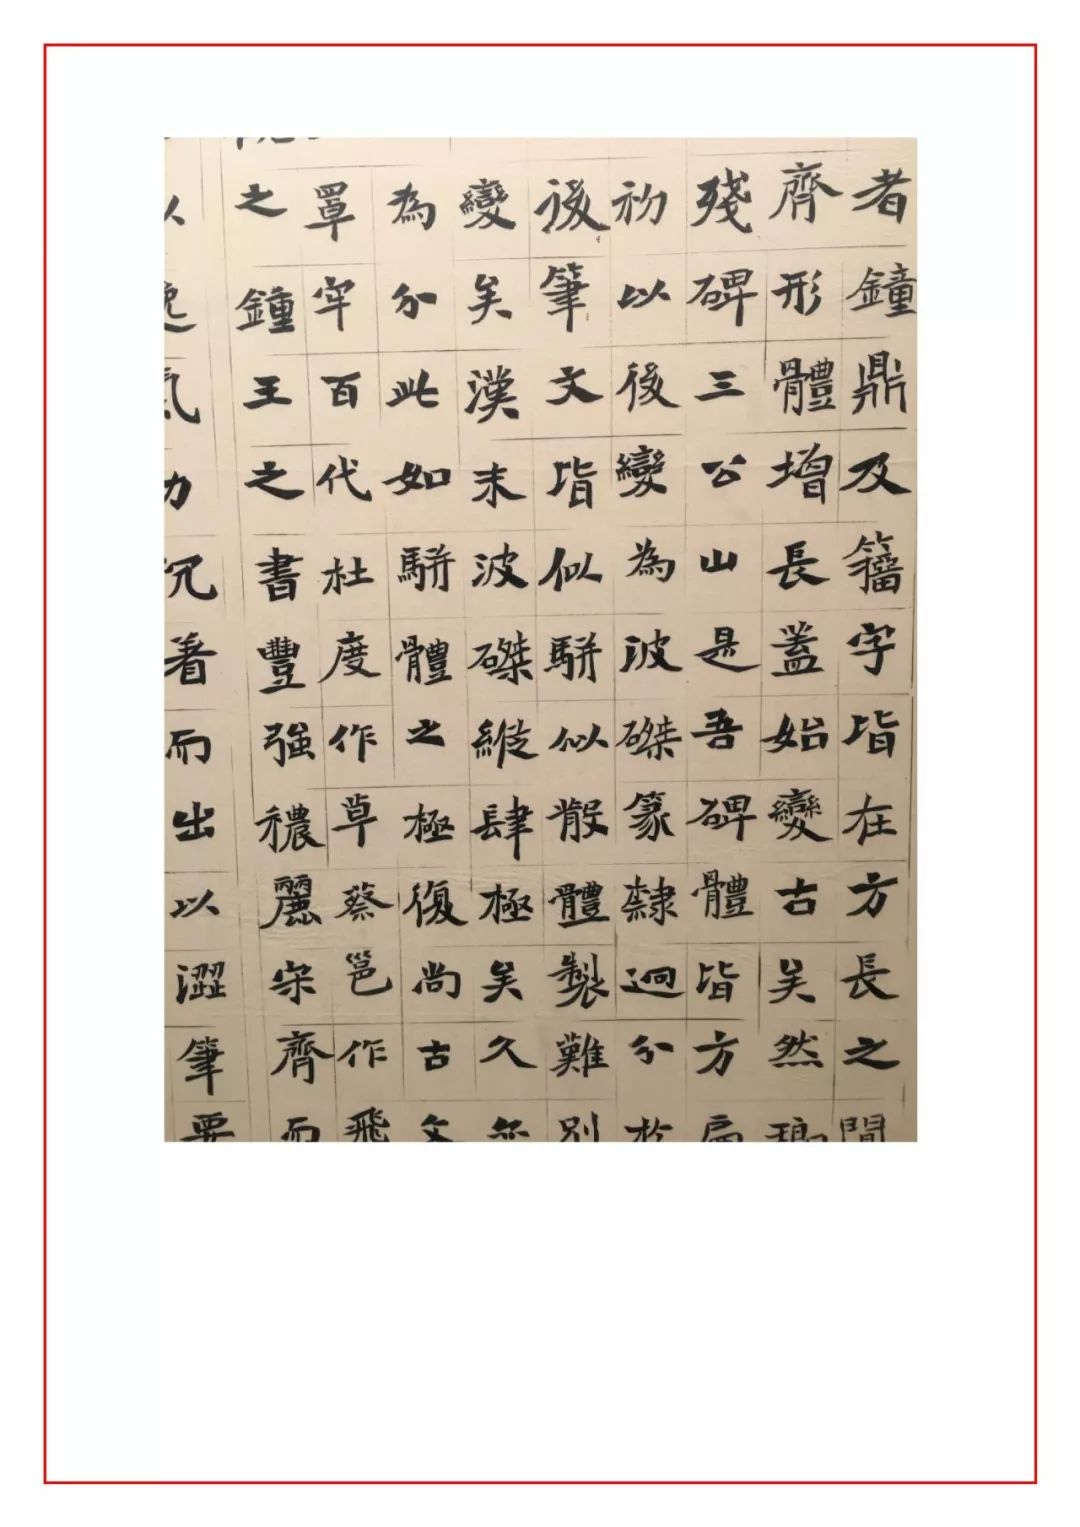 者鐘鼎及籀字皆在方長之間
齊形體增長蓋始變古矣然瑯
殘碑三公山是吾碑體皆方扁
初以後變為波磔篆隸迥分於
後筆文皆似駢似散體製難別
變矣漢末波磔縱肆極矣久
為分此如駢體之極復尚古文
罩牢百代杜度作草蔡邕作飛
之鍾王之書豐強穠麗宋齊而
以逸氣力沉着而出以澀筆要